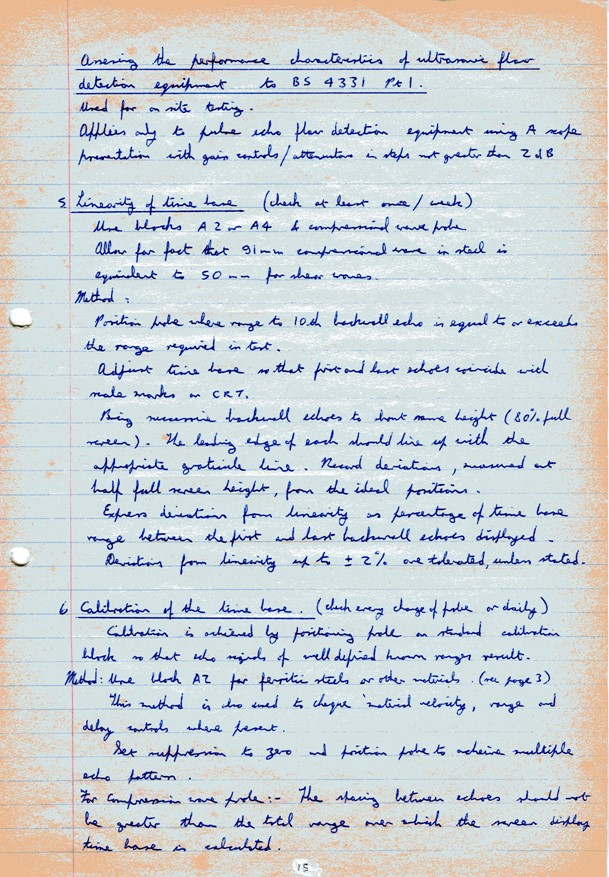 Assessing the performance characteristics of ultrasonic flaw
detection equipment to BS 4331 Pt 1.
Used for on site testing.
Applies only to pulse echo flaw detection equipment using A scope
presentation with gain controls/attenuators in steps not greater than 2 dB
5 Linearity of time base (check at least once/week)
Use blocks A2 or A4 & compressional wave probe
Allow for fact that 91mm compressional wave in steel is
equivalent to 50mm for shear waves.
Method:
Position probe where range to 10th backwall echo is equal to or exceeds
the range required in test.
Adjust time base so that first and last echoes coincide with
scale marks on CRT.
Bring successive backwall echoes to about same height (80% full
screen). The leading edge of each should line up with the
appropriate graticule line. Record deviations, measured at
half full screen height, from the ideal positions.
Express deviations from linearity as percentage of time base
range between the first and last backwall echoes displayed.
Deviations from linearity up to ± 2% are tolerated, unless stated.
6 Calibration of the time base. (check every change of probe or daily)
Calibration is achieved by positioning probe on standard calibration
block so that echo signals of well defined known ranges result.
Method: Use block A2 for ferritic steels or other materials. (see page 3)
This method is also used to cheque material velocity, range and
delay controls where present.
Set suppression to zero and position probe to acheive multiple
echo pattern.
For compression wave probe:- The spacing between echoes should not
be greater than the total range over which the screen display
time base is calculated.
15